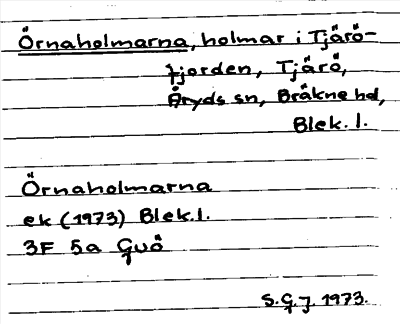 Örnaholmarna, holmar i Tjärö-
fjorden, Tjärö,
Åryds sn, Bräkne hd,
Blek. l.
Örnaholmarna
ek (1973) Blek.l.
3F 5a Guö
S.G.J. 1973.